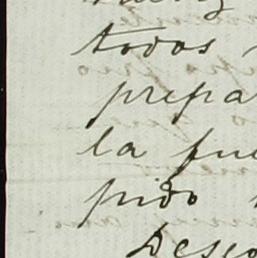 todos
prepa
la fue
pido
Deseo